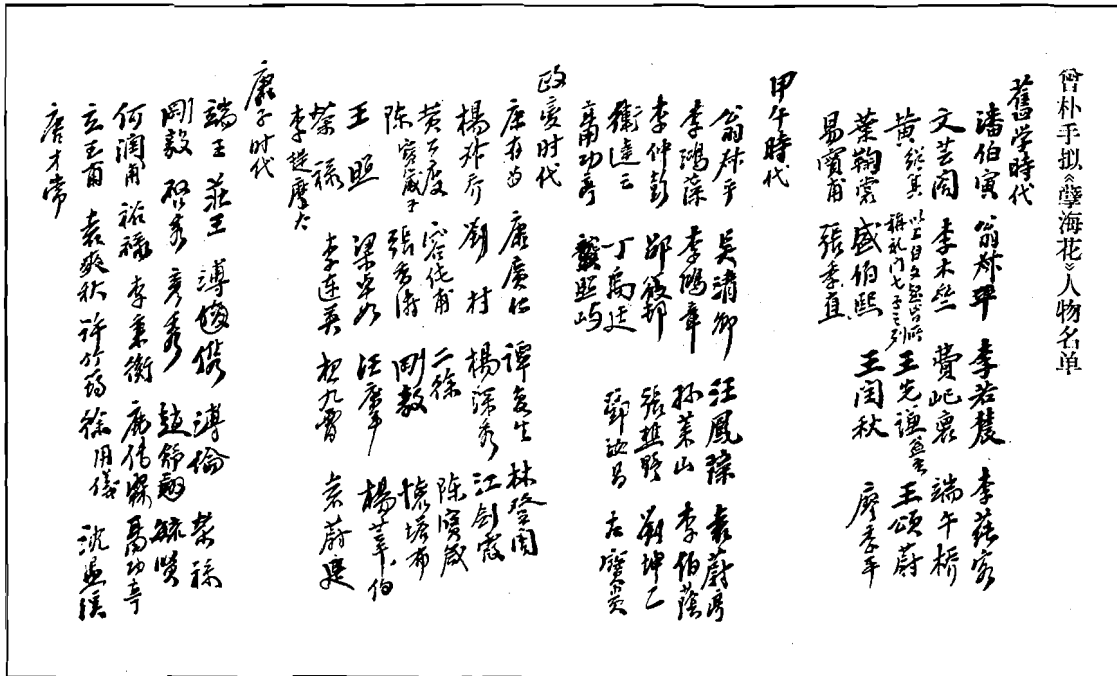 曾朴手拟《孽海花》人物名单
舊学時代
潘伯寅 翁叔平 李若農 李蒓客
文芸閣 李木斋 費屺褱 端午橋
黄 以上 王先謙 王頌蔚
葉鞠裳 盛伯熙 王闓秋 廖季平
易實甫 張季直
甲午時代
翁叔平 吳清卿 汪鳳藻 袁蔚亭
李鴻藻 李鴻章 孫萊山 李伯蔭
李仲彭 邵筱邨 張樵野 劉坤一
衛達三 丁禹廷 鄧汝昌 左寶貴
聶功亭 龔照嶼
政变时代
康有为 康廣仁 譚复生 林暾閣
楊叔乔 刘村 楊深秀 江剑霞
黄公度 二徐 陈寶箴
陈寶箴子 張香涛 剛毅 懷塔布
王照 梁卓如 汪康年 楊莘伯
榮禄 李连英 袁蔚庭
李提摩太
庚子时代
端王 莊王 溥儁 溥倫 榮禄
剛毅 啟秀 趙舒翹 毓贤
何潤甫 裕禄 李秉衡 鹿传霖 聶功亭
立玉甫 袁爽秋 許竹筠 徐用儀 沈藎
唐才常